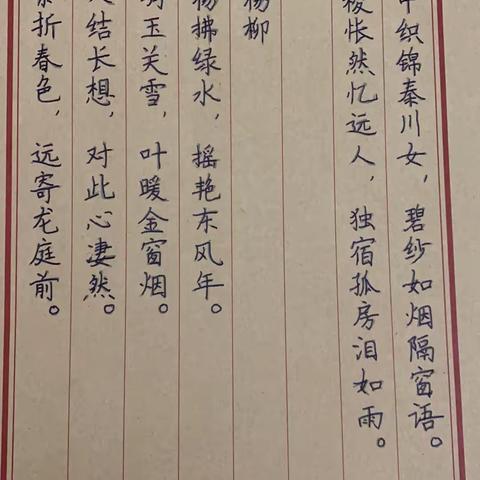 中织锦秦川女，碧纱如烟隔窗语。
梭怅然忆远人，独宿孤房泪如雨。
杨柳
杨拂绿水，摇艳东风年。
明玉关雪，叶暖金窗烟。
人结长想，对此心凄然。
条折春色，远寄龙庭前。